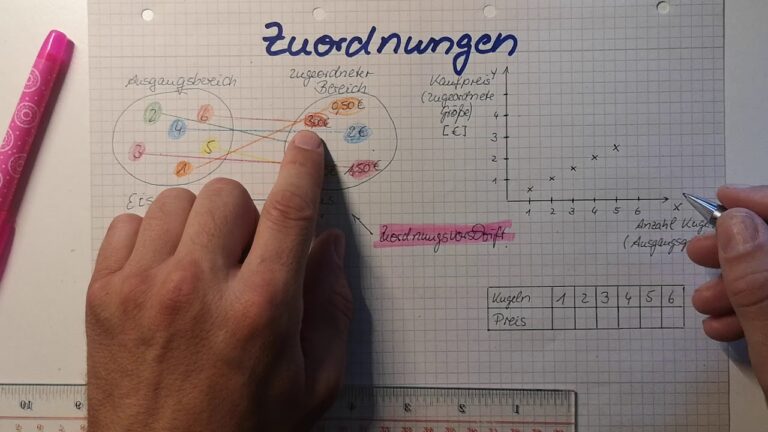 Zuordnungen
Ausgangsbereich
zugeordneter
Bereich
2
6
4
5
3
1
0,50€
3,00€
2€
1,50€
Zuordnungsvorschrift
Kaufpreis
(zugeordnete
größe)
[€]
y
4
3
2
1
1 2 3 4 5 6
x
Anzahl
Kugeln 1 2 3 4 5 6
Preis